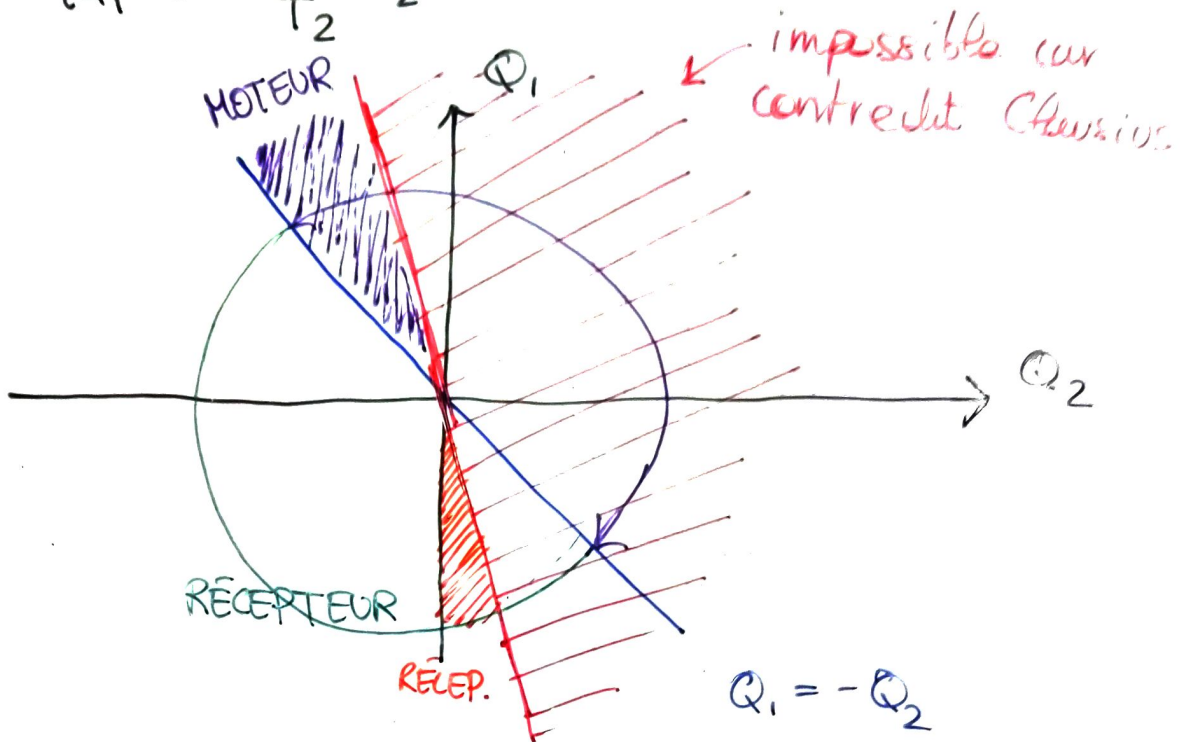 T₂
MOTEUR
Q₁
impossible car
contredit Clausius
Q₂
RÉCEPTEUR
RÉCEP.
Q₁ = - Q₂